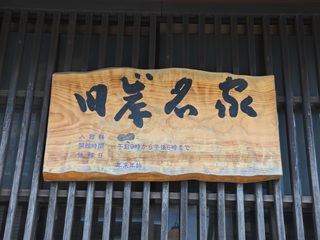 旧岸名家
入館料
開館時間 午前9時から午後5時まで
休館日 年末年始